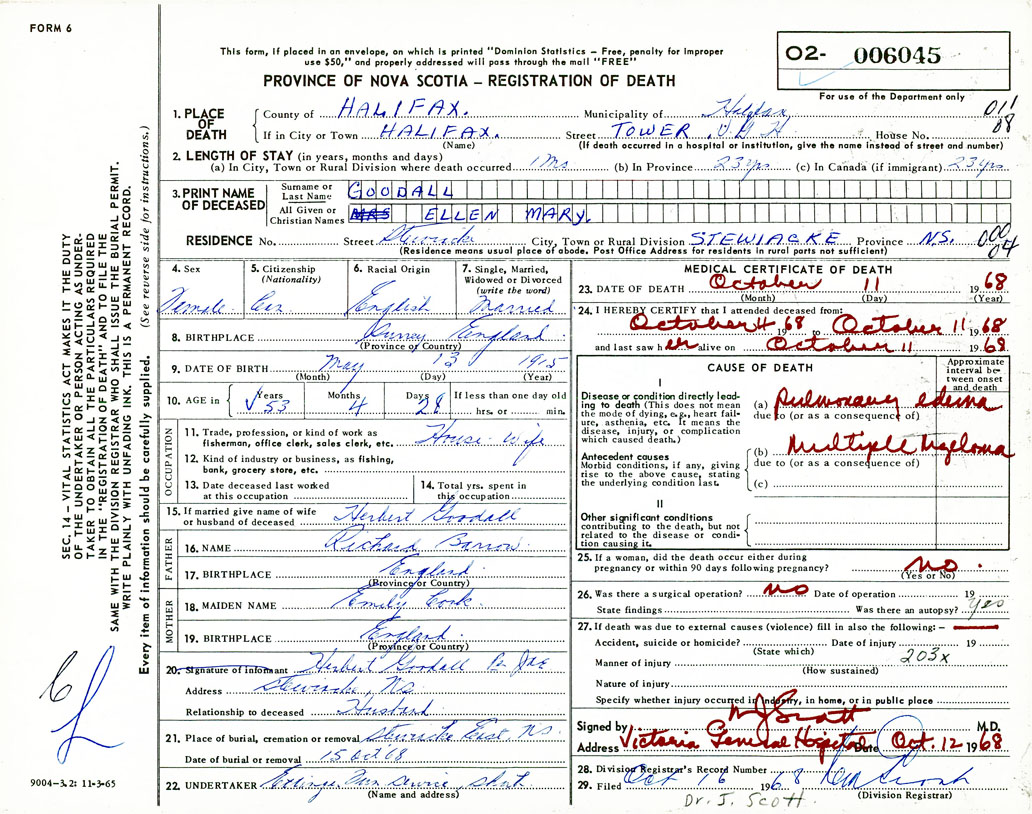 FORM 6
This form, if placed in an envelope, on which is printed "Dominion Statistics – Free, penalty for improper
use $50," and properly addressed will pass through the mail "FREE"
PROVINCE OF NOVA SCOTIA – REGISTRATION OF DEATH
02- 006045
For use of the Department only
011
08
1. PLACE OF DEATH
County of HALIFAX. Municipality of Halifax
If in City or Town HALIFAX. Street TOWER . V.G.H House No.
(Name) (If death occurred in a hospital or institution, give the name instead of street and number)
2. LENGTH OF STAY (in years, months and days)
(a) In City, Town or Rural Division where death occurred 1 Ms (b) In Province 23 yrs (c) In Canada (if immigrant) 23 yrs
3. PRINT NAME OF DECEASED
Surname or Last Name GOODALL
All Given or Christian Names MRS ELLEN MARY.
RESIDENCE No. Street Stewiacke City, Town or Rural Division STEWIACKE Province N.S. 000
04
(Residence means usual place of abode. Post Office Address for residents in rural parts not sufficient)
4. Sex
Female
5. Citizenship
(Nationality)
Can
6. Racial Origin
English
7. Single, Married,
Widowed or Divorced
(write the word)
Married
8. BIRTHPLACE Surrey England
(Province or Country)
9. DATE OF BIRTH May 13 1915
(Month) (Day) (Year)
10. AGE in
Years 53 Months 4 Days 28 If less than one day old
hrs. or min.
OCCUPATION
11. Trade, profession, or kind of work as
fisherman, office clerk, sales clerk, etc. House wife
12. Kind of industry or business, as fishing,
bank, grocery store, etc.
13. Date deceased last worked
at this occupation
14. Total yrs. spent in
this occupation
15. If married give name of wife
or husband of deceased Herbert Goodall
FATHER
16. NAME Richard Barrow
17. BIRTHPLACE England
(Province or Country)
MOTHER
18. MAIDEN NAME Emily Cook
19. BIRTHPLACE England
(Province or Country)
20. Signature of informant Herbert Goodall
Address Stewiacke, N.S.
Relationship to deceased Husband
21. Place of burial, cremation or removal Stewiacke East, N.S.
Date of burial or removal 15 Oct 68
22. UNDERTAKER
(Name and address)
MEDICAL CERTIFICATE OF DEATH
23. DATE OF DEATH October 11 1968
(Month) (Day) (Year)
24. I HEREBY CERTIFY that I attended deceased from
October 4 1968 to October 11 1968
and last saw her alive on October 11 1968
CAUSE OF DEATH
Approximate
interval be-
tween onset
and death
I
Disease or condition directly lead-
ing to death (This does not mean
the mode of dying, e.g., heart fail-
ure, asthenia, etc. It means the
disease, injury, or complication
which caused death.)
(a) Pulmonary edema
due to (or as a consequence of)
Antecedent causes
Morbid conditions, if any, giving
rise to the above cause, stating
the underlying condition last.
(b) Multiple Myeloma
due to (or as a consequence of)
(c)
II
Other significant conditions
contributing to the death, but not
related to the disease or condi-
tion causing it.
25. If a woman, did the death occur either during
pregnancy or within 90 days following pregnancy? No.
(Yes or No)
26. Was there a surgical operation? No Date of operation 19
State findings Was there an autopsy? Yes
27. If death was due to external causes (violence) fill in also the following: –
Accident, suicide or homicide? Date of injury 19
(State which)
203x
Manner of injury
(How sustained)
Nature of injury
Specify whether injury occurred in industry, in home, or in public place
Signed by Scott M.D.
Address Victoria General Hospital Date Oct. 12 1968
28. Division Registrar's Record Number
29. Filed Oct 16 1968
(Division Registrar)
Dr. J. Scott.
SEC. 14 – VITAL STATISTICS ACT MAKES IT THE DUTY
OF THE UNDERTAKER OR PERSON ACTING AS UNDER-
TAKER TO OBTAIN ALL THE PARTICULARS REQUIRED
IN THE "REGISTRATION OF DEATH" AND TO FILE THE
SAME WITH THE DIVISION REGISTRAR WHO SHALL ISSUE THE BURIAL PERMIT.
WRITE PLAINLY WITH UNFADING INK. THIS IS A PERMANENT RECORD.
Every item of information should be carefully supplied. (See reverse side for instructions.)
9004-3.2: 11-3-65